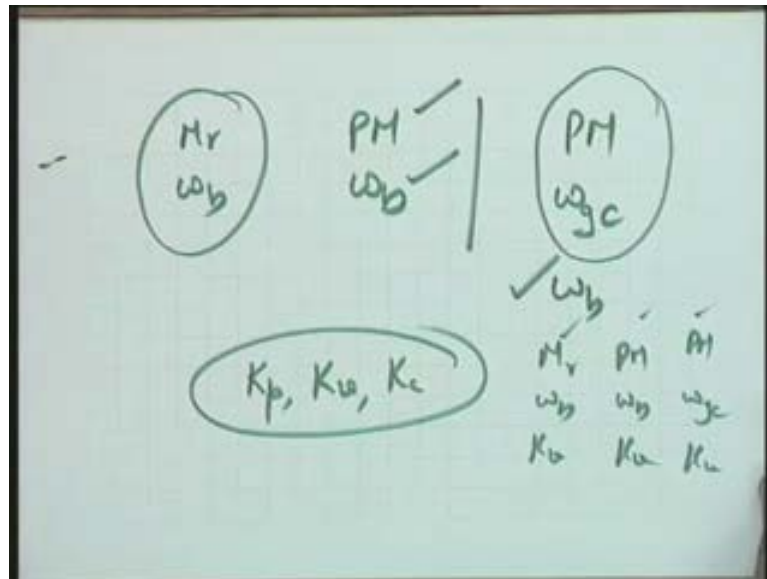 Mr PM ✓ PM
ωb ωb ✓ ωgc
✓ ωb
Kp, Kv, Kc
Mr PM PM
ωb ωb ωgc
Kv Kv Kv